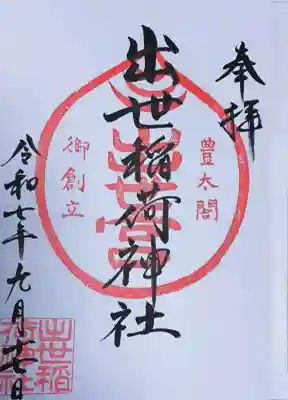 奉拝
豊太閤
出世稲荷神社
御創立
令和七年九月廿七日
出世稲
荷神社